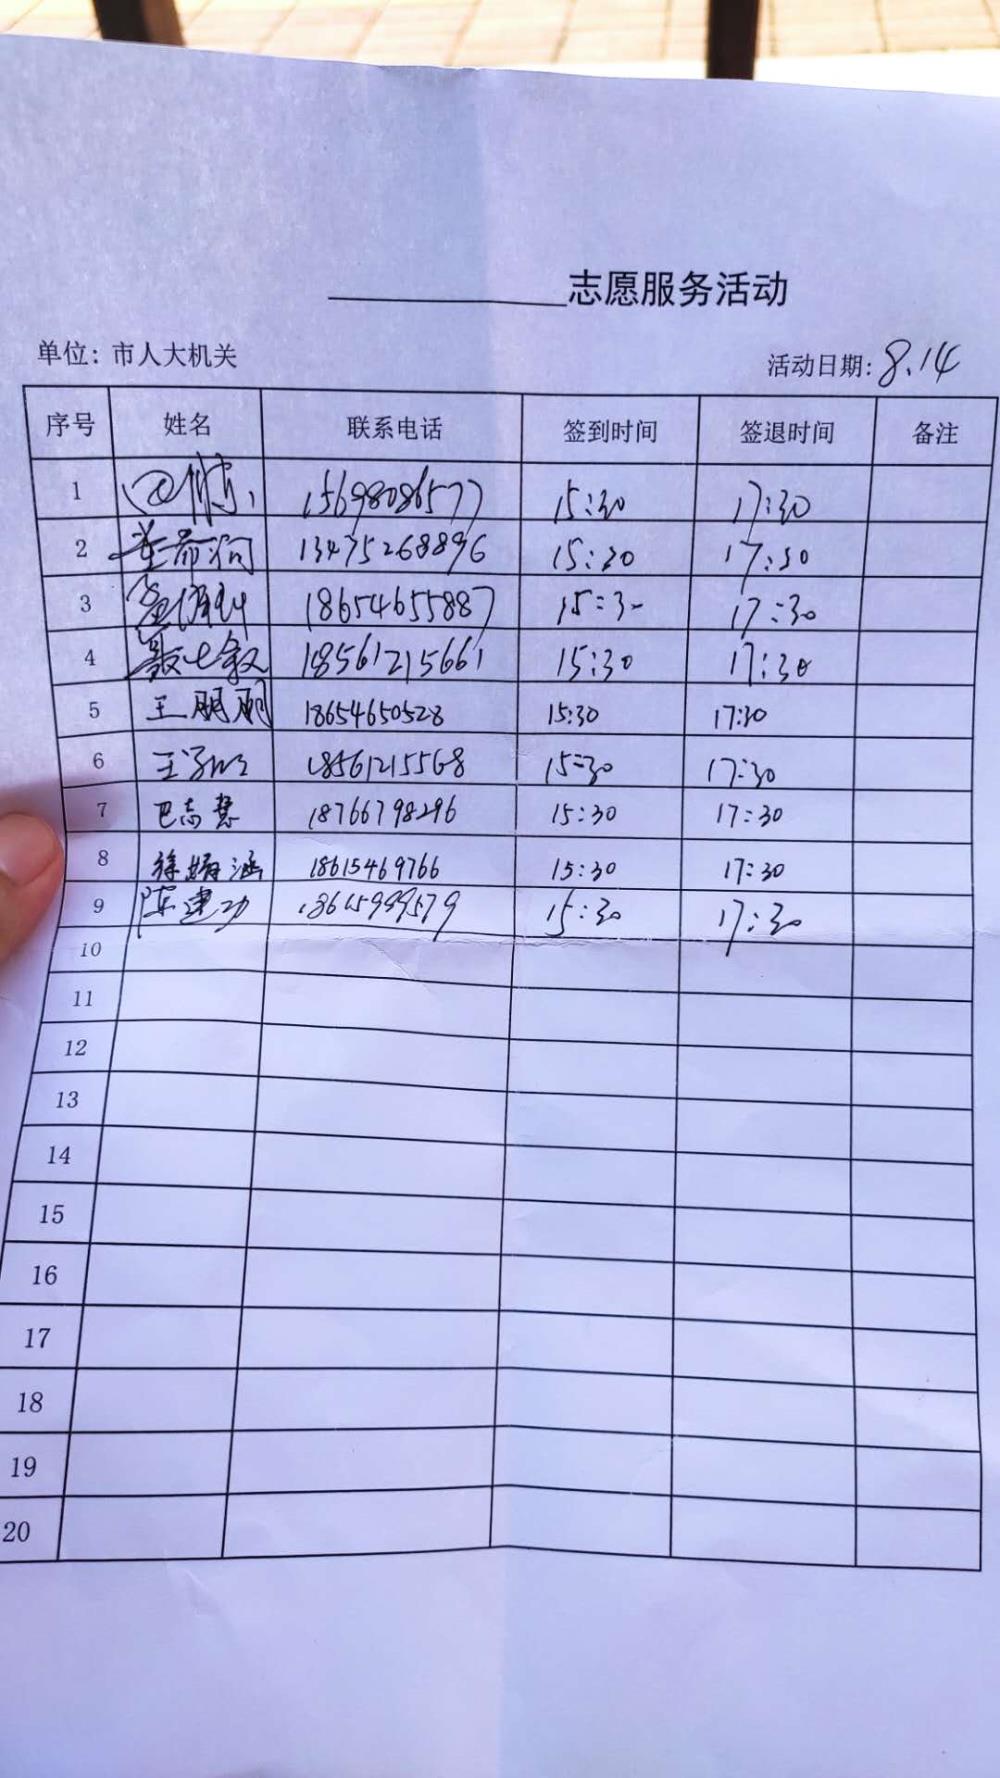 志愿服务活动
单位：市人大机关 活动日期：8.14
序号 姓名 联系电话 签到时间 签退时间 备注
1 15698086577 15:30 17:30
2 13475268896 15:30 17:30
3 18654655887 15:30 17:30
4 18561215661 15:30 17:30
5 王朋朋 18654650528 15:30 17:30
6 王 18561215568 15:30 17:30
7 巴志慧 18766798296 15:30 17:30
8 徐婧涵 18615469766 15:30 17:30
9 陈建功 15:30 17:30
10
11
12
13
14
15
16
17
18
19
20